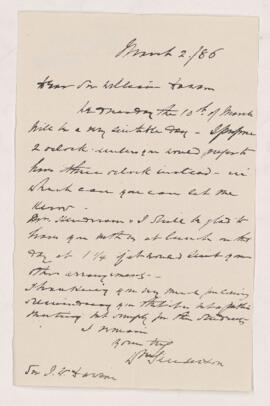 March 2./86
Dear Sir William Dawson
Wednesday the 10th of March
will be a very suitable day - I propose
2 o'clock unless you would prefer to
have three o'clock instead - in
which case you can let me
know.
Mrs. Henderson & I shall be glad to
have you with us at lunch on that
day at 1 1/4 if it would suit your
other arrangements -
Thanking you very much for
reminding you that it is a public
meeting not simply for the students
I remain
Yours truly
Wm Henderson
Sir J. W. Dawson